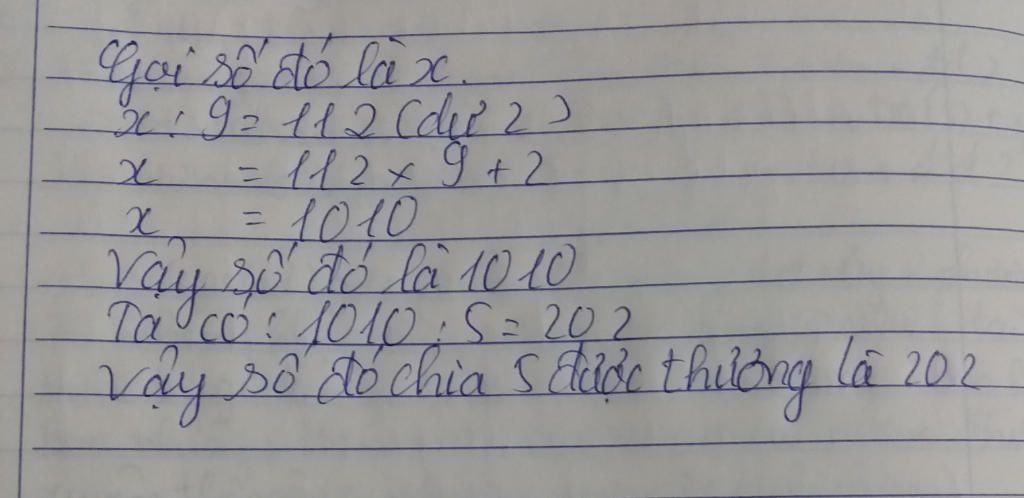 Gọi số đó là x.
x : 9 = 112 (dư 2)
x = 112 x 9 + 2
x = 1010
Vậy số đó là 1010
Ta có : 1010 : 5 = 202
Vậy số đó chia 5 được thương là 202